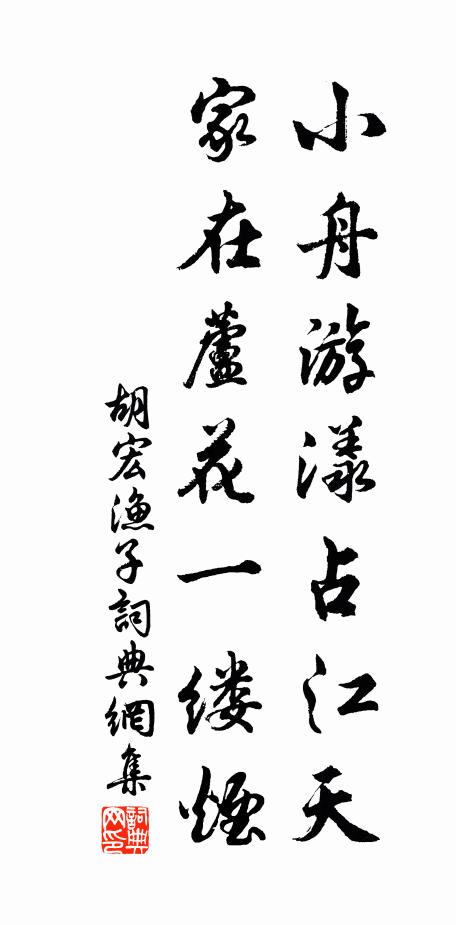 小舟游漾占江天
家在蘆花一缕煙
胡宏漁子詞典網集
詞典网印